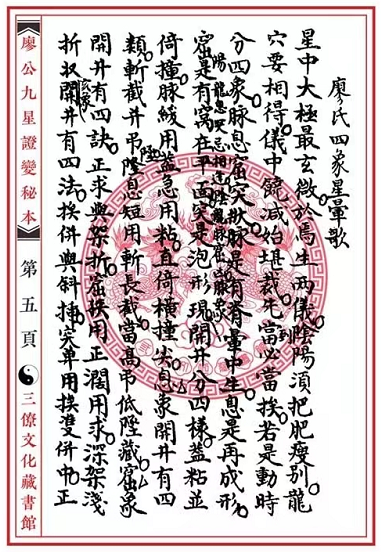 廖氏四象星暈歌
星中大極最玄微於焉生兩儀陰陽須把肥瘦別龍
穴要相得儀中饒減始堪裁先當必當挨若是動時
分四象脉息窟突狀脉是有脊暈中生息是再成形
窟是有窩在平面突是泡形現開井分四樣蓋粘並
倚撞脉緩用蓋急用粘直倚橫撞尖息象開井有四
類斬截并吊墜息短用斬長截當高吊低墜藏窟象
開井有四訣正求與架折窟狹用正濶用求深架淺
折突開井有四法挨併與斜插突單用挨雙併中正
廖公九星證變秘本
第五頁
三僚文化藏書館